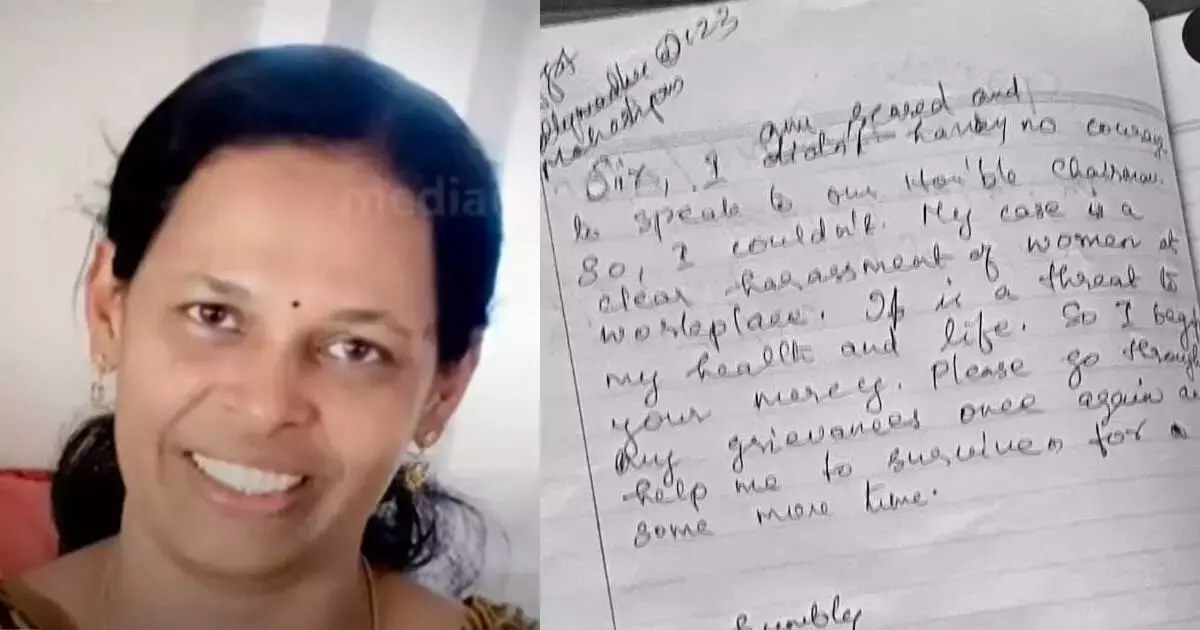 media
123
scared and
Sir, I having no courag
to speak to our Hon'ble Chairman.
So, I couldn't. My case is a
clear harassment of women at
workplace. It is a threat to
my health and life. So I beg
your mercy. Please go through
my grievances once again a
help me to for a
some more time.
Humbly